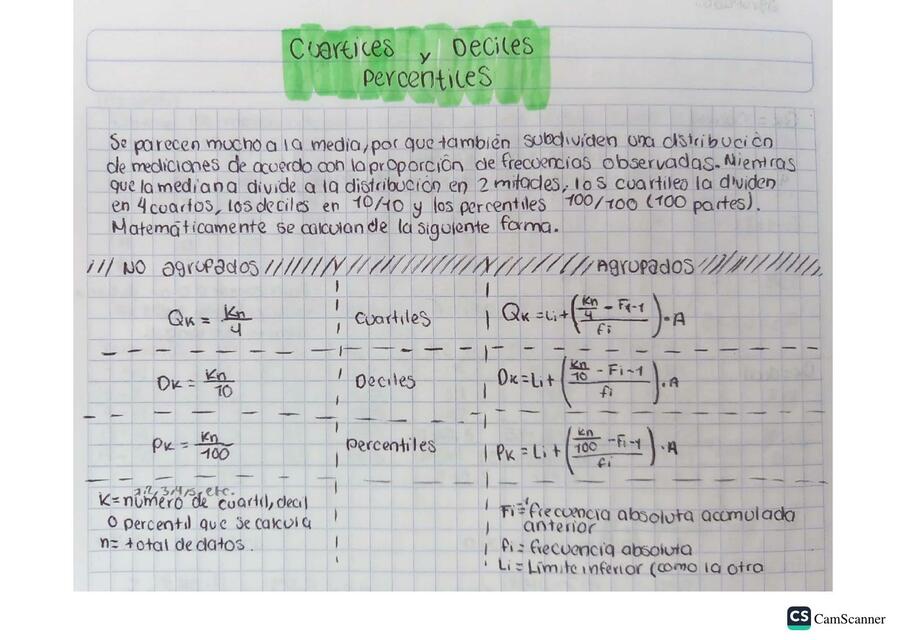 Cuartices y Deciles
Percentiles
Se parecen mucho a la media, por que también subdividen una distribución
de mediciones de acuerdo con la proporción de frecuencias observadas. Mientras
que la mediana divide a la distribución en 2 mitades, los cuartileo la dividen
en 4 cuartos, los deciles en 10/10 y los percentiles 100/100 (100 partes).
Matemáticamente se calculan de la siguiente forma.
/// NO agrupados ////// Agrupados //////
Qk = Kn/4 Cuartiles Qk = Li + ((Kn/4 - Fi-1)/fi) · A
Dk = Kn/10 Deciles Dk = Li + ((Kn/10 - Fi-1)/fi) · A
Pk = Kn/100 Percentiles Pk = Li + ((Kn/100 - Fi-1)/fi) · A
1,2,3,4,5, etc.
K = número de cuartil, decil
o percentil que se calcula
n = total de datos.
Fi-1 = frecuencia absoluta acumulada
anterior
fi = frecuencia absoluta
Li = Límite inferior (como la otra
CS CamScanner